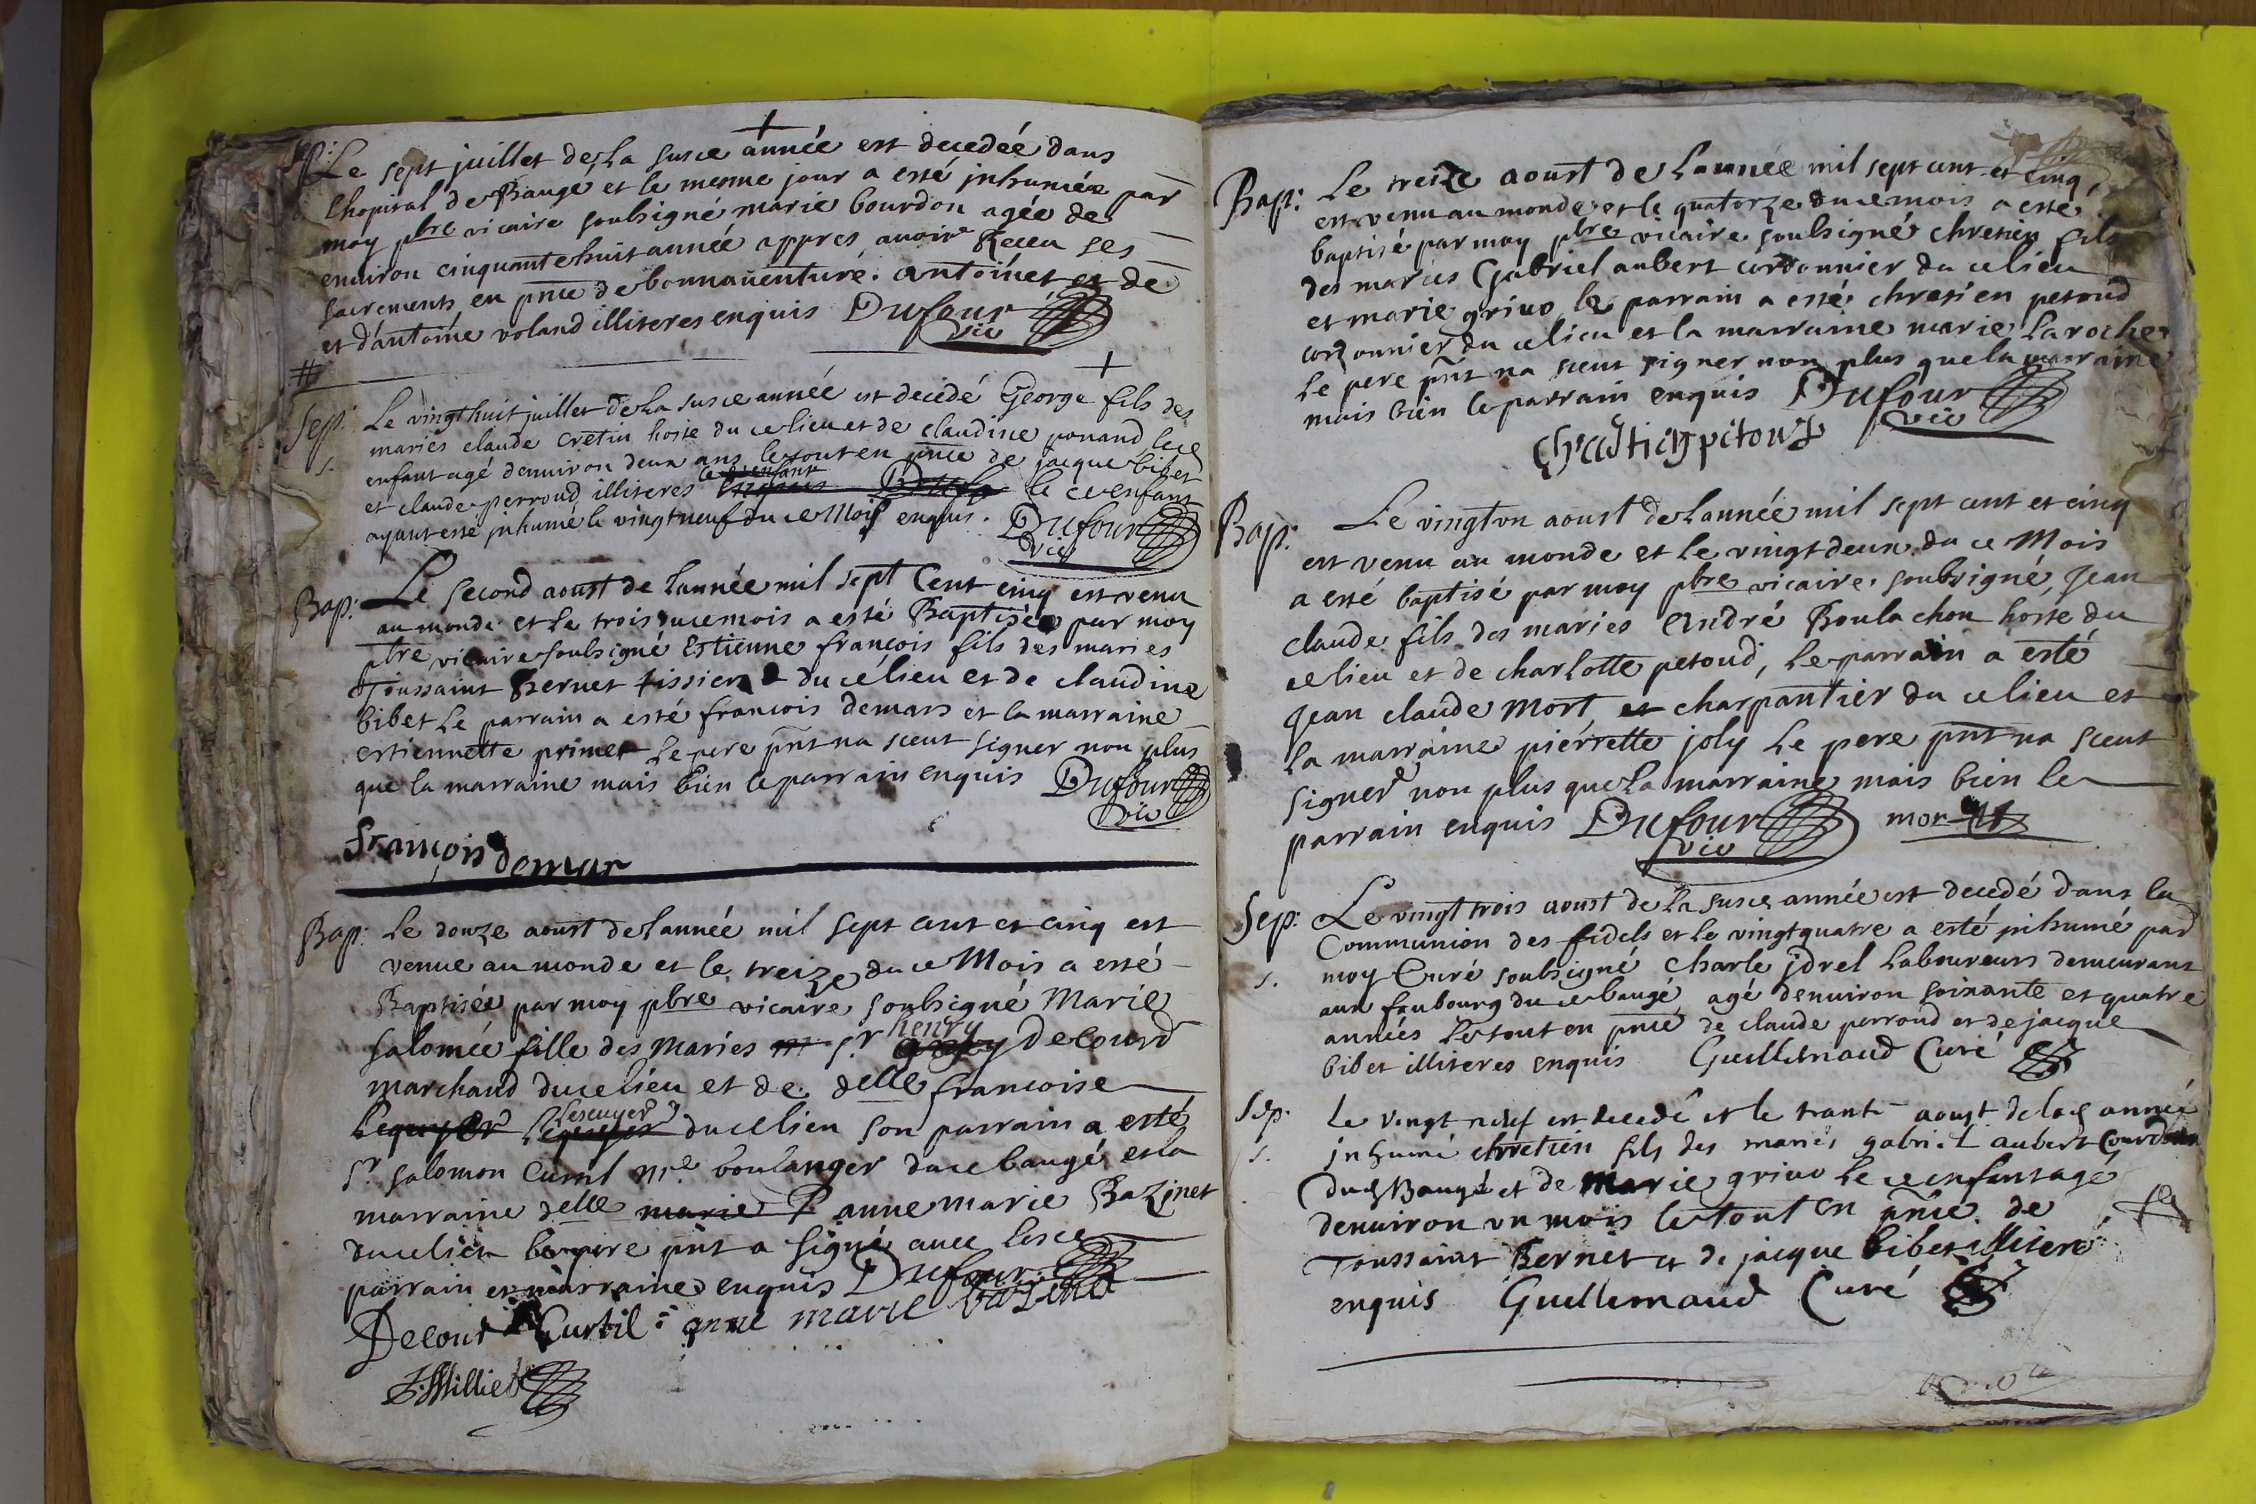 Sep: Le sept juillet de la susce année est decedée dans
lhopital de Baugé et le mesme jour a esté inhumée par
moy pbre vicaire soubsigné marie bourdon agée de
enuiron cinquante huit année appres auoir Receu ses
sacrements en pnce de bonnauenture. antoinet et de
et dantoine voland illiteres enquis Dufour
vic
Sep: Le vingt huit juillet de la susce année est decedé George fils des
s. mariés claude cretin hoste du ce lieu et de claudine ponand lece
enfant agé denuiron deux ans le tout en pnce de jacque bibet
et claude perroud illiteres le ce enfant
ayant esté inhumé le vingt neuf du ce Mois enquis. Dufour
vic
Bap: Le second aoust de lannée mil sept Cent cinq est venu
au monde et le trois du ce mois a esté Baptisé par moy
pbre vicaire soubsigné Estienne françois fils des maries
Toussaint Bernet tissier du ce lieu et de claudine
bibet Le parrain a esté francois demars et la marraine
estiennette primet Le pere pnt na sceut signer non plus
que la marraine mais bien le parrain enquis Dufour
vic
François demar
Bap: Le douze aoust de lannée mil sept cent et cinq est
venue au monde et le treize du ce Mois a esté
Baptisée par moy pbre vicaire soubsigné Marie
salomée fille des Maries sr henry Decourd
marchand du ce lieu et de delle francoise
lescuyer du ce lieu son parrain a esté
sr salomon Curtil me boulanger du ce baugé et la
marraine delle marie P anne marie Bazinet
du ce lieu le pere pnt a signé auec lesce
parrain et marraine enquis Dufour
Decourd Curtil anne marie bazinet
J. Milliet
Bap: Le treize aoust de Lannée mil sept cent et Cinq,
est venu au monde et le quatorze du ce mois a esté
baptisé par moy pbre vicaire soubsigné chretien fils
des maries Gabriel aubert cordonnier du ce lieu
et marie griuo le parrain a esté chretien petoud
cordonnier du ce lieu et la marraine marie Laroche
Le pere pnt na sceut signer non plus que la marraine
mais bien le parrain enquis Dufour
vic
Chrastien pitoux
Bap: Le vingt vn aoust de Lannée mil sept cent et cinq
est venu au monde et le vingt deux du ce Mois
a esté baptisé par moy pbre vicaire soubsigné, Jean
claude fils des maries André Boulachon hoste du
ce lieu et de charlotte petoud, Le parrain a esté
Jean claude Mort et charpantier du ce lieu et
La marraine pierrette joly Le pere pnt na sceut
signer non plus que La marraine mais bien le
parrain enquis Dufour mort
vic
Sep: Le vingt trois aoust de la susce année est decedé dans la
Communion des fidels et le vingt quatre a esté inhumé par
s. moy Curé soubsigné Charle jdrel Laboureurs demeurant
aux faubourg du ce baugé agé denuiron soixante et quatre
années Le tout en pnce de claude perroud et de jacque
bibet illiteres enquis Guillemaud Curé
Sep. Le vingt neuf est decedé et le trante aoust de lad année
s. inhumé chretien fils des mariés gabriel aubert
du d Baugé et de Marie griuo Le ce enfant agé
denuiron vn mois le tout en pnce de
Toussaint Bernet et de jacque bibet illitere
enquis Guillemaud Curé